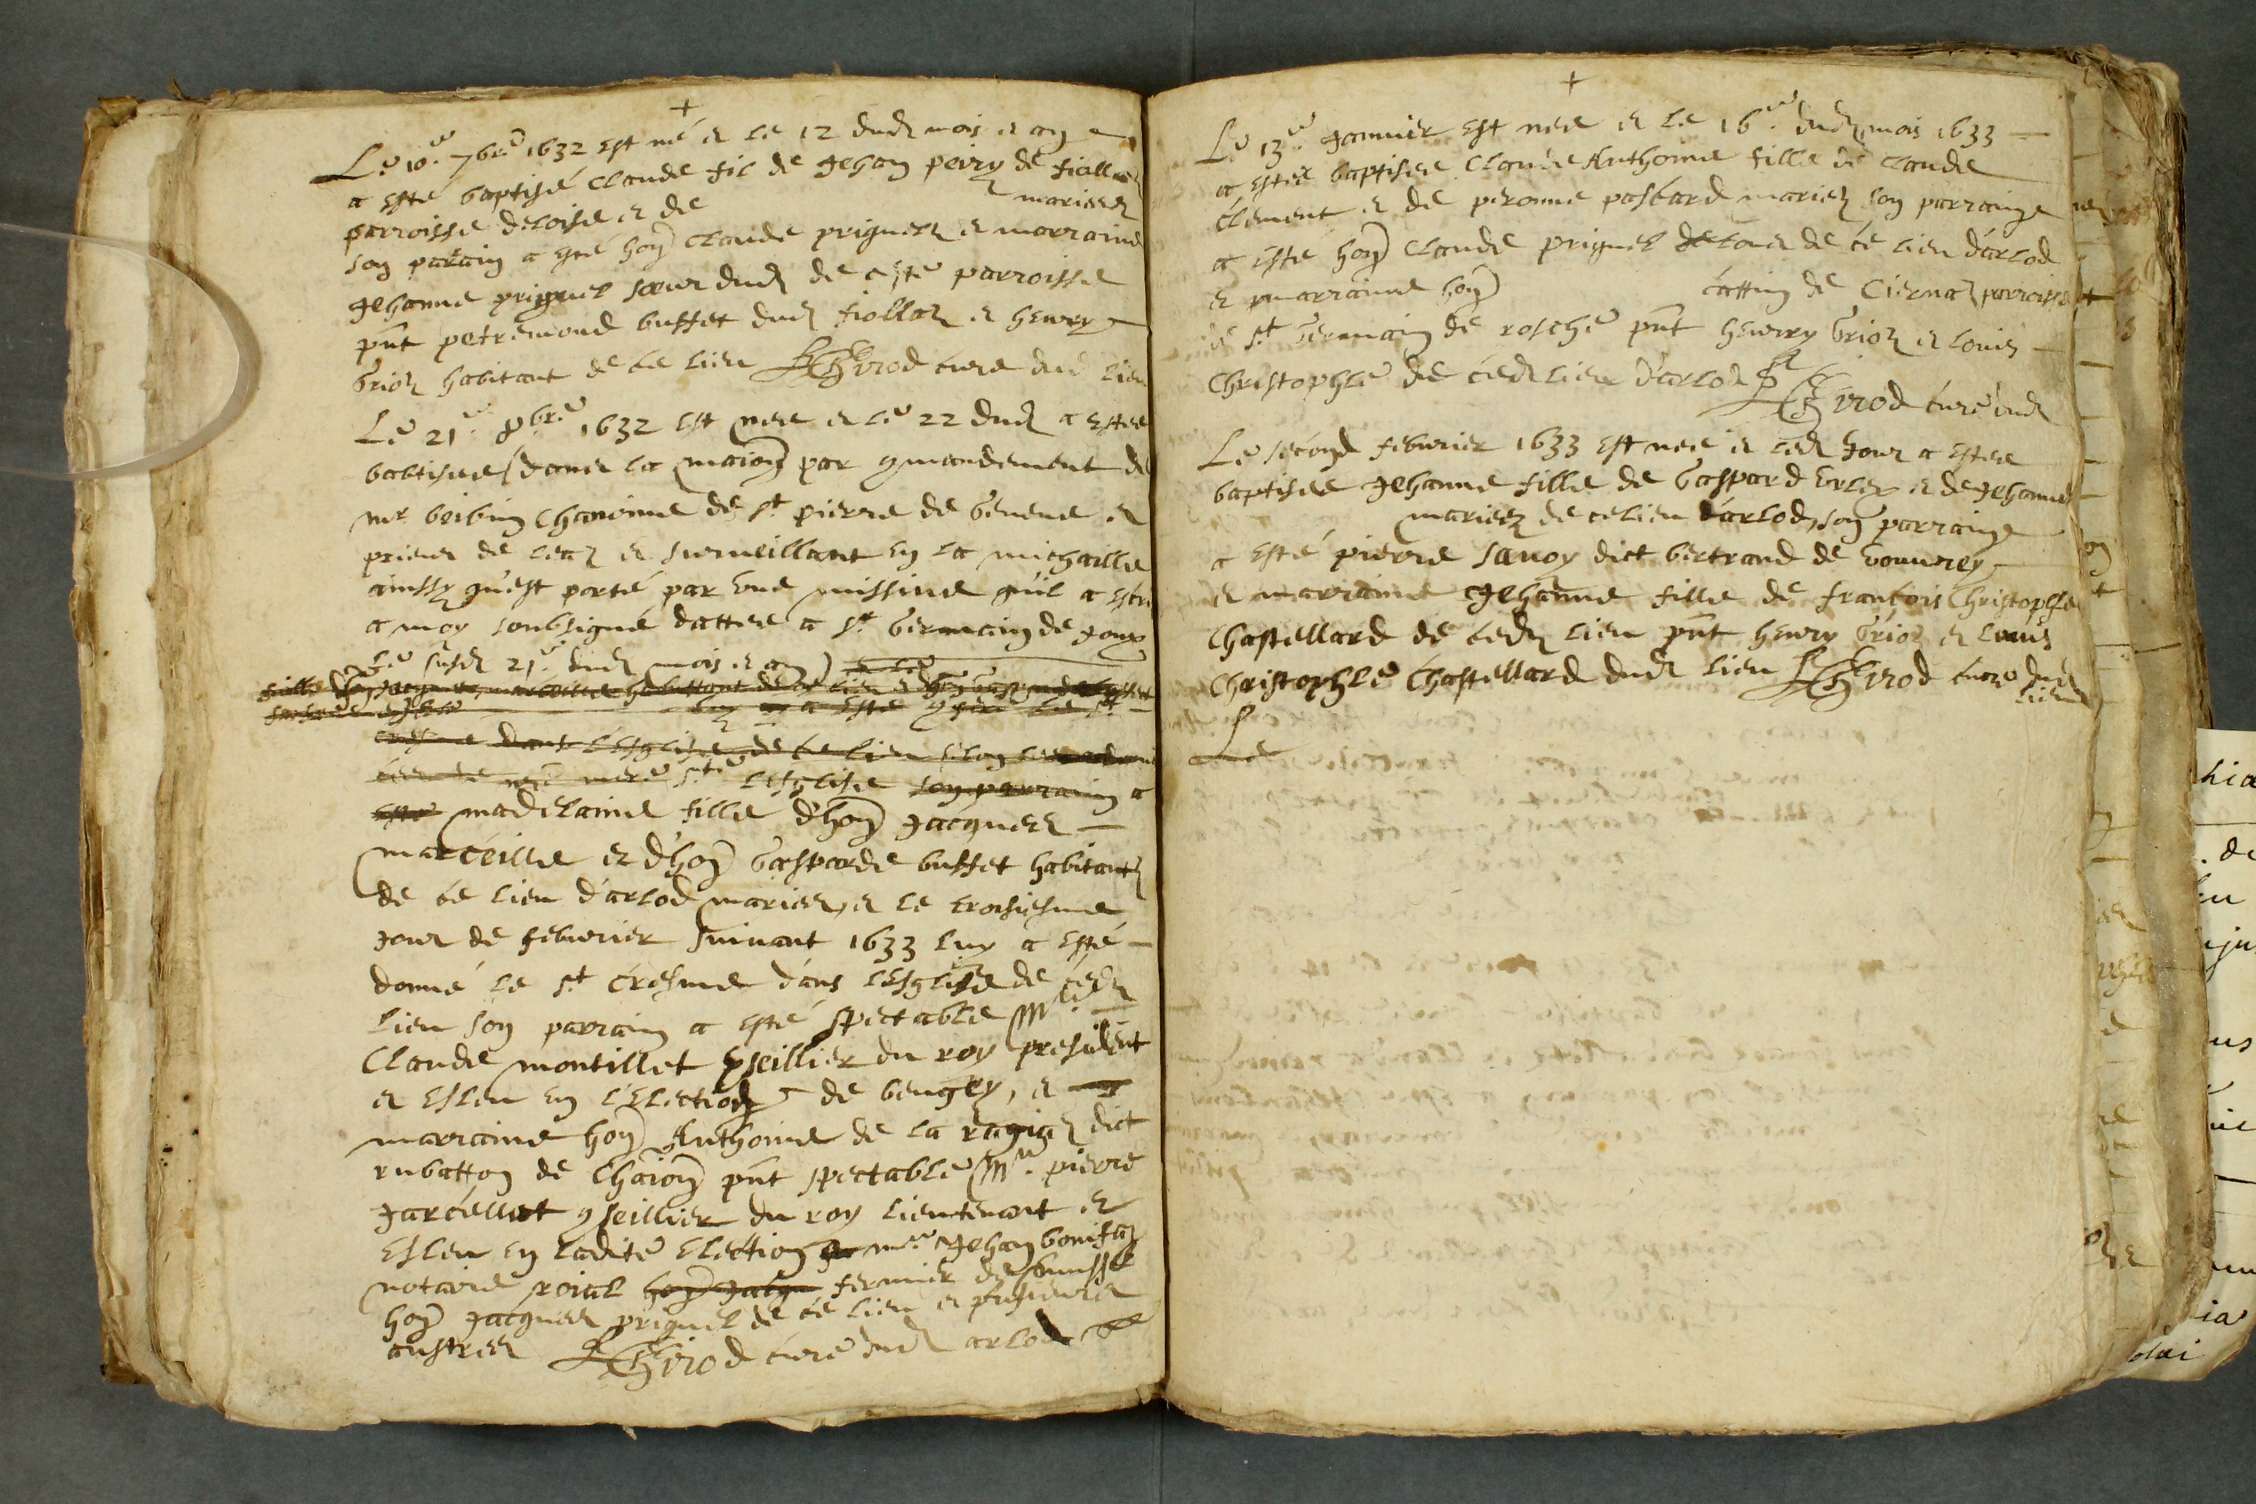 +
Le 10e 7bre 1632 est né et le 12 dud mois et an
a esté baptisé Claude fil de Jehan peiry de fiollaz
parroisse deloise et de mariez
son parain a esté hon Claude priguel et marraine
Jehanne priguel sœur dud de ceste parroisse
pnt petremond buffet dud fiollaz et henry
Grioz habitant de ce lieu Girod cure dud lieu
Le 21e 8bre 1632 est nee et le 22 dud a estee
babtisee (dans la maion par gmandement de
mr beibin Chanoine de st pierre de Geneve et
prieur de leaz et surveillant en la michaille
ainssy quest porté par une missive quil a
a moy soubsigné dattee a st Germain de Joux
le susd 21e dud mois et an)
fille
luy a esté le st
cresme dans lesglise de ce lieu selon
nre mere ste lesglise son parrain a
esté madelaine fille dhon Jacques
marceille et dhon Gasparde buffet habitantz
de ce lieu darlod mariez, et le troisiesme
Jour de febvrier suivant 1633 luy a esté
donné le st cresme dans lesglise de ced
lieu son parrain a esté spectable Mre
Claude montillet gseillier du roy president
et esleu en lelection de beugey, et
marraine hon Anthoine de la ragiaz dict
rubatton de Chaion pnt spectable Mre pierre
Jarcellat gseillier du roy lieutenant et
esleu en ladite election mre Jehan bonifaz
notaire roial hon Jacqu fermier des
hon Jacques priguel de ce lieu et plusieurs
austres Girod cure dud arlod
+
Le 13e Janvier est nee et le 16e dud mois 1633
a estee baptisee Claude Anthoine fille de Claude
Clement et de peronne pastard mariez son parrainge
a este hon Claude priguel de ce lieu darlod
et marraine hon cattin de Ciernaz parroisse
de st Germain de rosche pnt henrry Grioz et louis
Christophle de ced lieu darlod Girod curé dud
Le second febvrier 1633 est nee et led Jour a estee
baptisee Jehanne fille de Gaspard et de Jehanne
mariez de ce lieu darlod, son parrainge
a esté pierre savoy dict bertrand de vouvrey
et marraine Jehanne fille de francois Christophle
Chastellard de ced lieu pnt henry Grioz et louis
Christophle Chastellard dud lieu Girod cure dud
lieu
Le